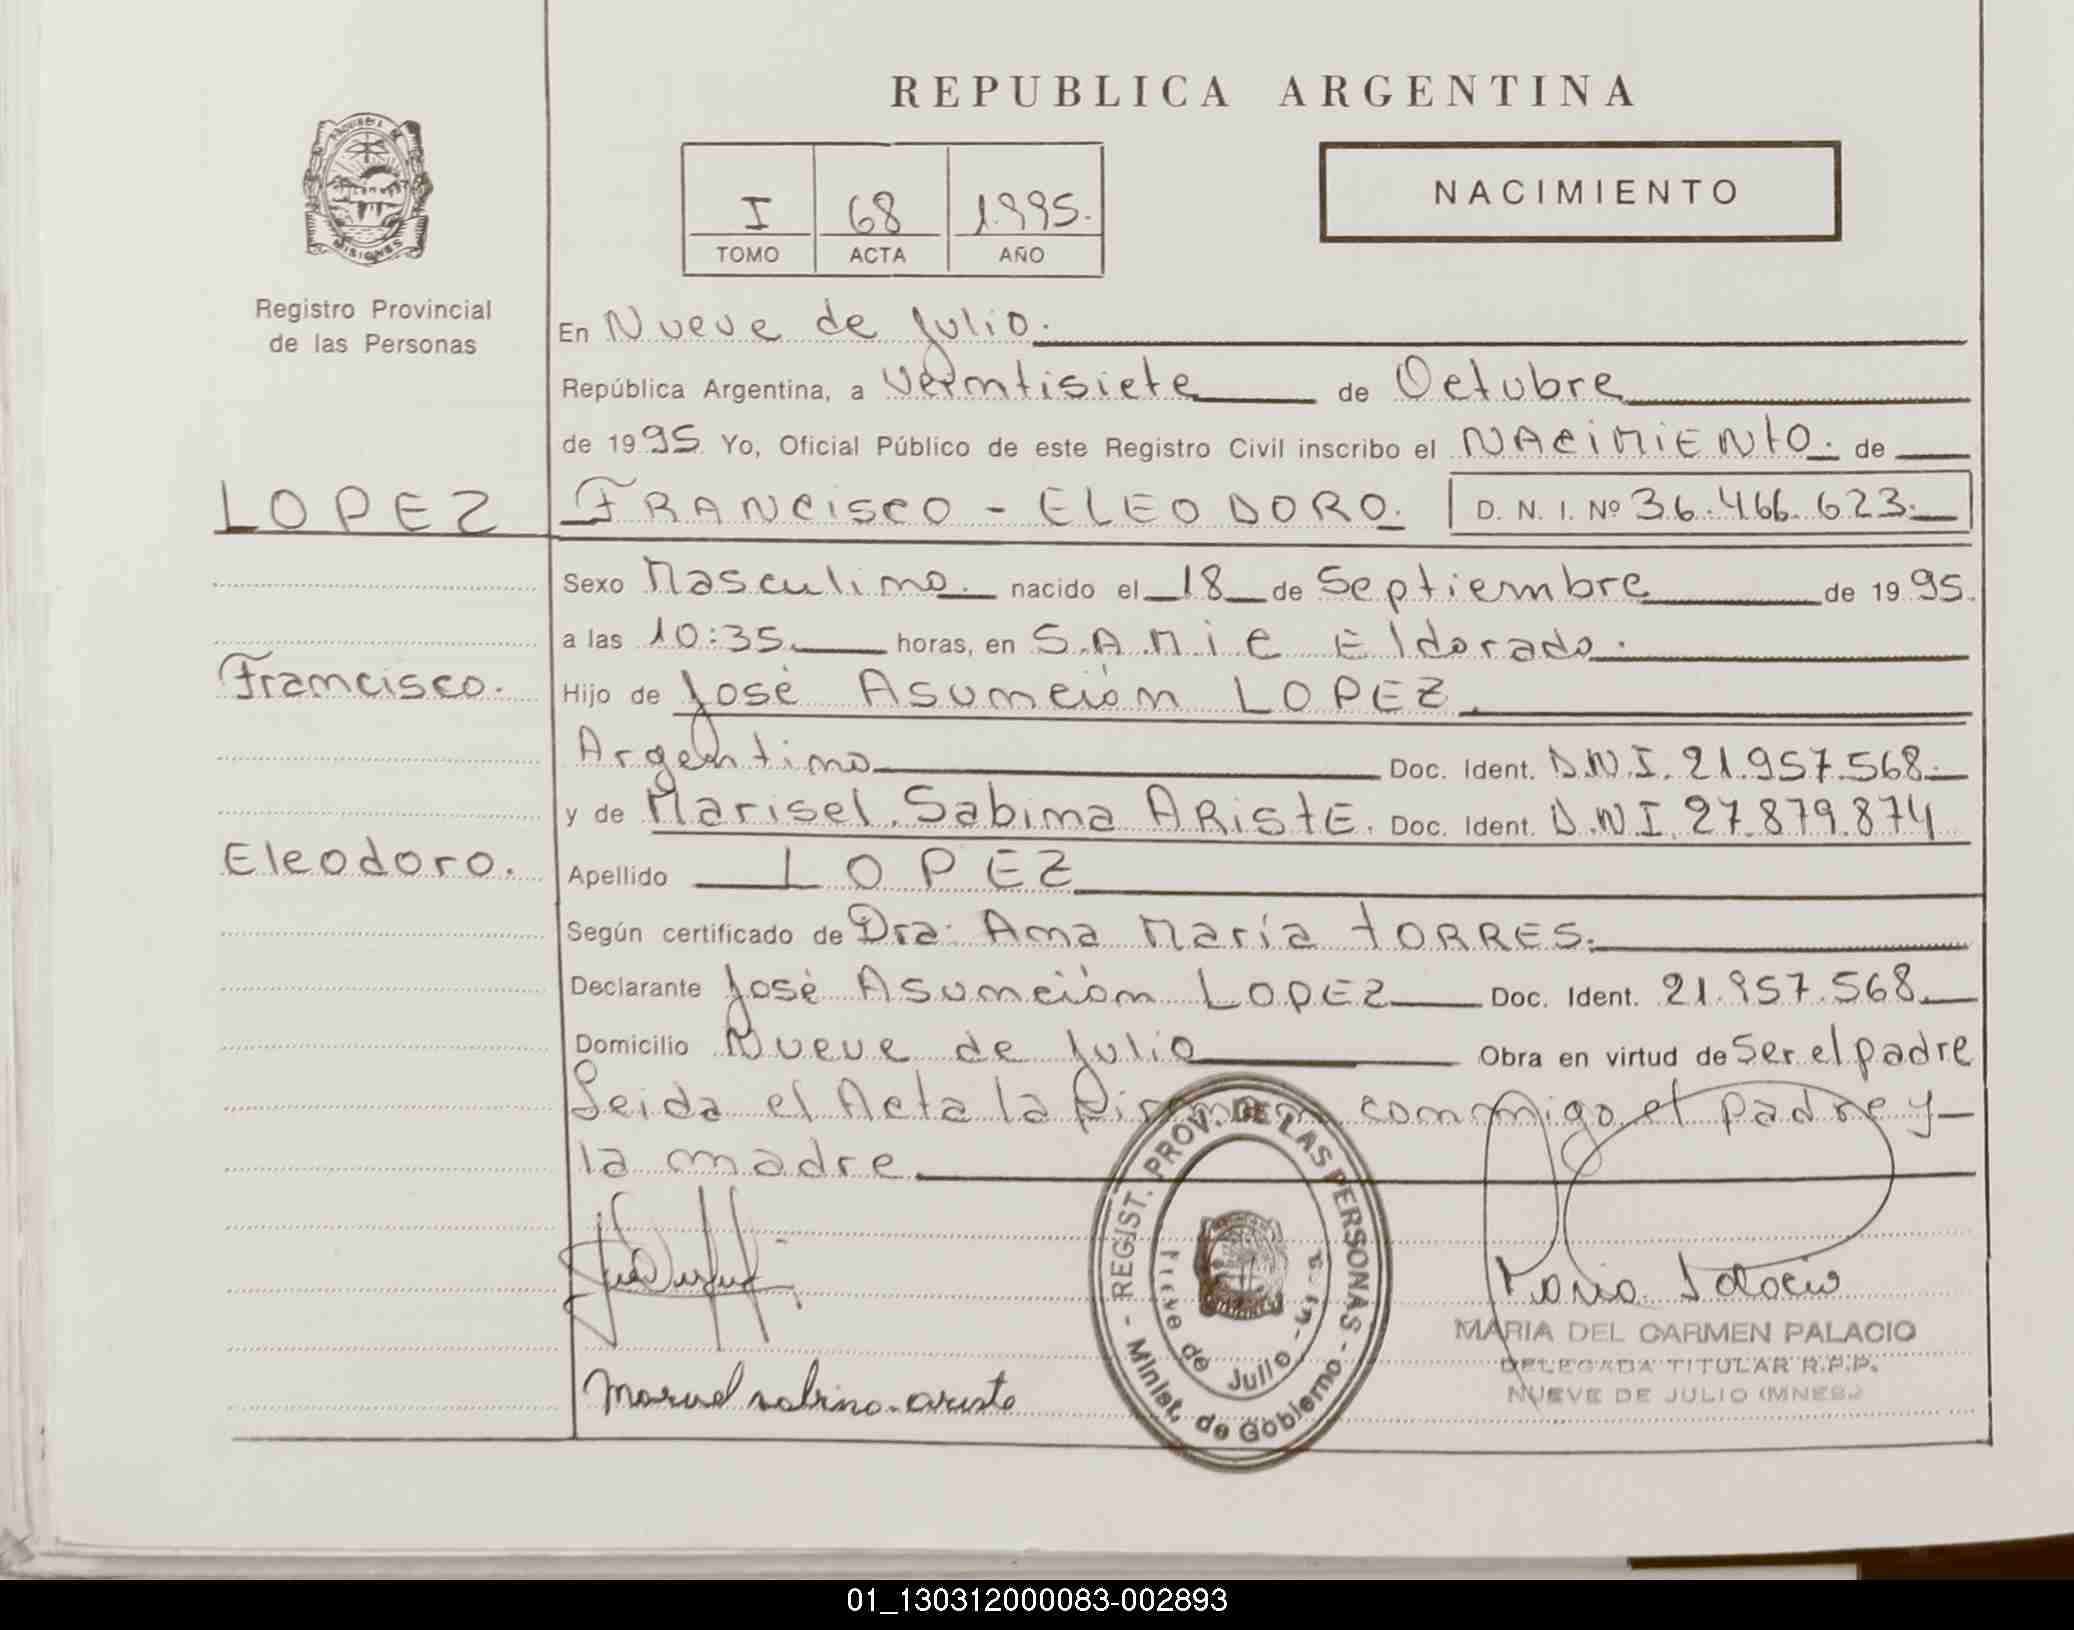 REPUBLICA ARGENTINA
PROVINCIA DE
MISIONES
I 68 1995.
TOMO ACTA AÑO
NACIMIENTO
Registro Provincial
de las Personas
En Nueve de Julio.
República Argentina, a Veintisiete de Octubre
de 1995 Yo, Oficial Público de este Registro Civil inscribo el NAciMiENtO. de
LOPEZ FRANcisco - ELEODORO. D. N. I. Nº 36.466.623.
Sexo Masculino. nacido el 18 de Septiembre de 1995.
a las 10:35 horas, en S.A.M i c Eldorado.
Francisco. Hijo de José Asunción LOPEZ.
Argentino Doc. Ident. D.N.I. 21.957.568.
y de Marisel Sabina ARistE. Doc. Ident. D.N.I. 27.879.874
Eleodoro. Apellido LOPEZ
Según certificado de Dra. Ana María tORRES.
Declarante José Asunción LOPEZ Doc. Ident. 21.957.568
Domicilio Nueve de Julio Obra en virtud de Ser el padre
Leida el Acta la firman conmigo el padre y
la madre
REGIST. PROV. DE LAS PERSONAS - Minist. de Gobierno -
Nueve de Julio - Mnes.
Maria Palacio
MARIA DEL CARMEN PALACIO
DELEGADA TITULAR R.P.P.
NUEVE DE JULIO (MNES.)
sabina ariste
01_130312000083-002893